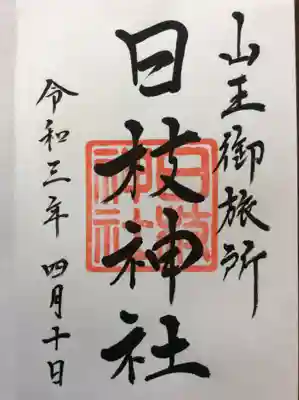 山王御旅所
日枝神社
令和三年 四月十日
日枝神社